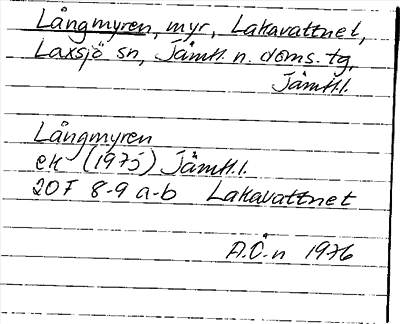 Långmyren, myr, Lakavattnet,
Laxsjö sn, Jämtl. n. doms. tg,
Jämtl.l.
Långmyren
ek (1975) Jämtl.l.
20F 8-9 a-b Lakavattnet
A.Ö.n 1976